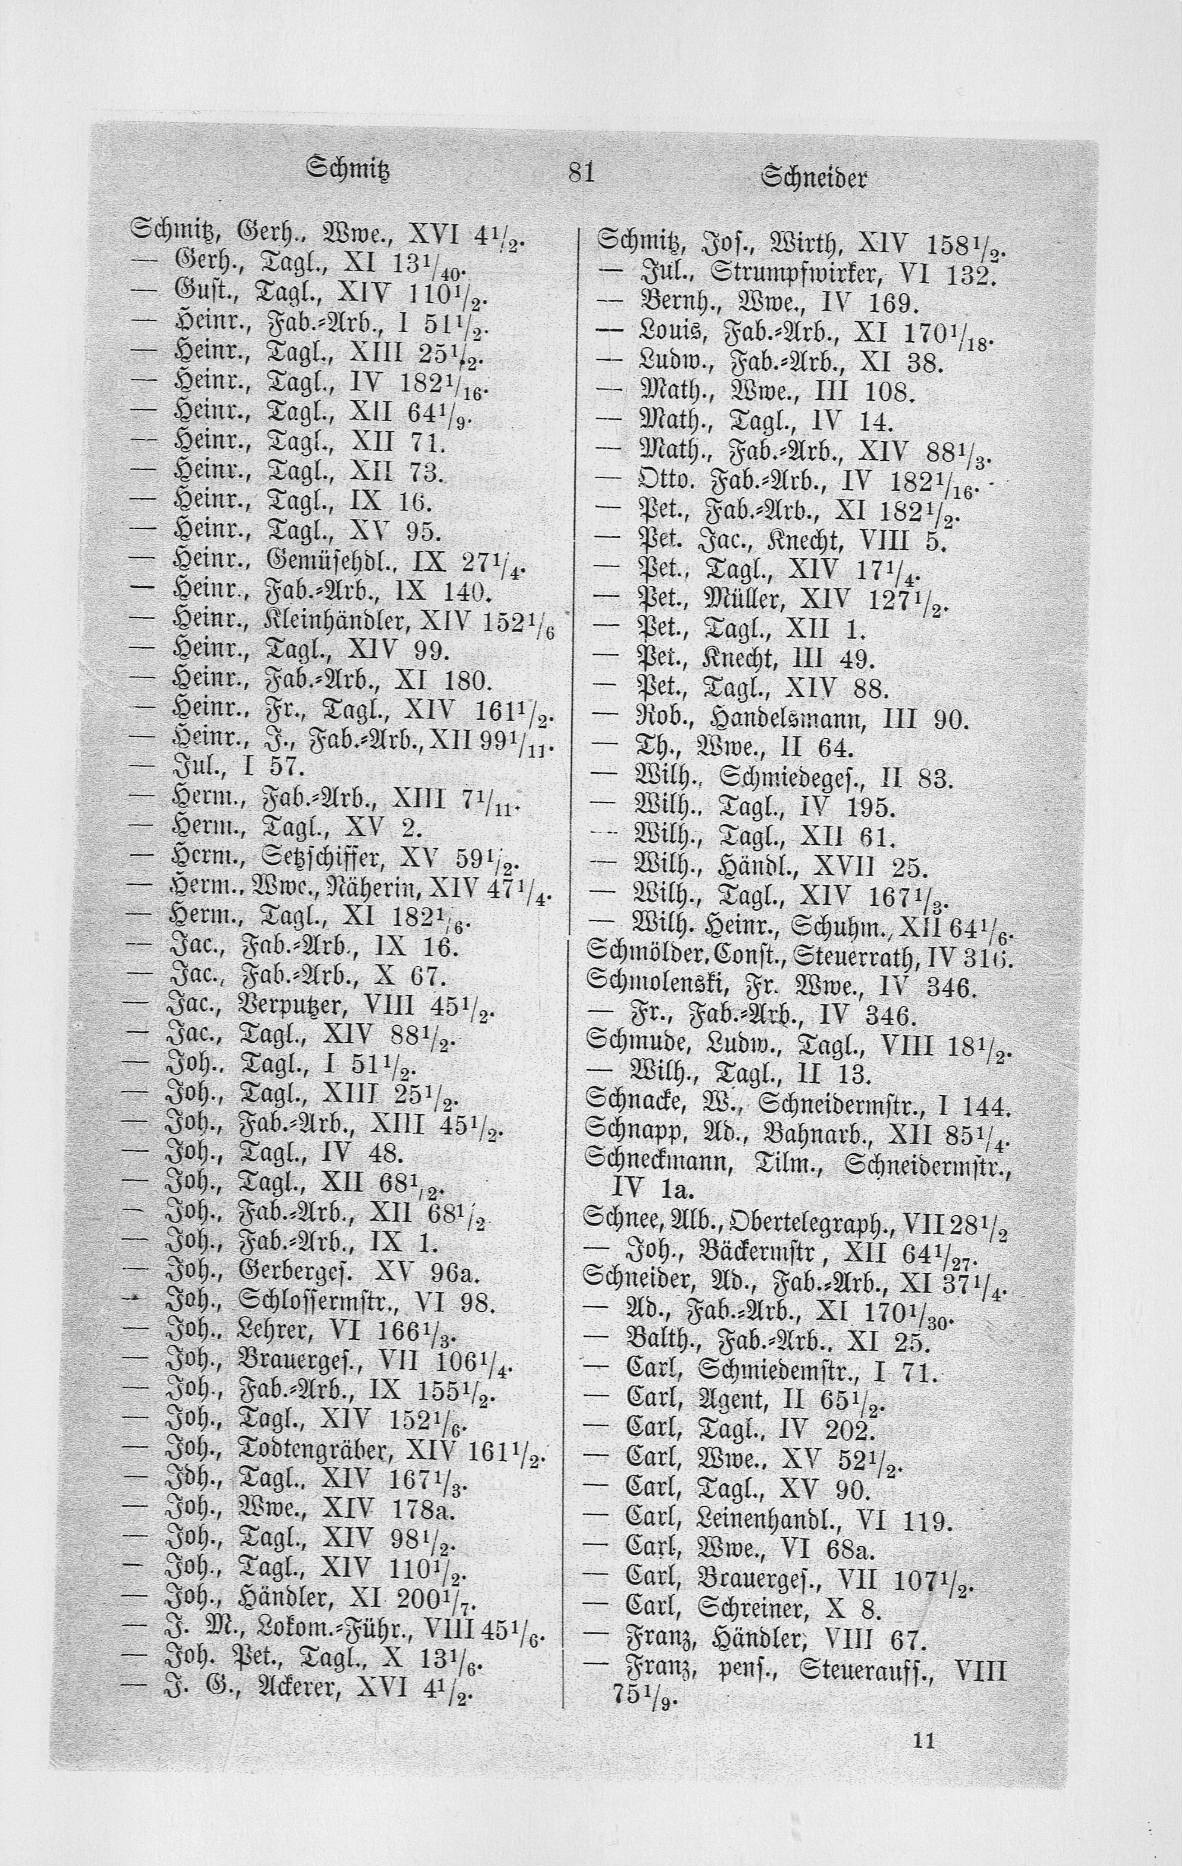 Schmitz 81 Schneider
Schmitz, Gerh., Wwe., XVI 4 1/2.
— Gerh., Tagl., XI 13 1/40.
— Gust., Tagl., XIV 110 1/2.
— Heinr., Fab.-Arb., I 51 1/2.
— Heinr., Tagl., XIII 25 1/2.
— Heinr., Tagl., IV 182 1/16.
— Heinr., Tagl., XII 64 1/9.
— Heinr., Tagl., XII 71.
— Heinr., Tagl., XII 73.
— Heinr., Tagl., IX 16.
— Heinr., Tagl., XV 95.
— Heinr., Gemüsehdl., IX 27 1/4.
— Heinr., Fab.-Arb., IX 140.
— Heinr., Kleinhändler, XIV 152 1/6
— Heinr., Tagl., XIV 99.
— Heinr., Fab.-Arb., XI 180.
— Heinr., Fr., Tagl., XIV 161 1/2.
— Heinr., J., Fab.-Arb., XII 99 1/11.
— Jul., I 57.
— Herm., Fab.-Arb., XIII 7 1/11.
— Herm., Tagl., XV 2.
— Herm., Setzschiffer, XV 59 1/2.
— Herm., Wwe., Näherin, XIV 47 1/4.
— Herm., Tagl., XI 182 1/6.
— Jac., Fab.-Arb., IX 16.
— Jac., Fab.-Arb., X 67.
— Jac., Verputzer, VIII 45 1/2.
— Jac., Tagl., XIV 88 1/2.
— Joh., Tagl., I 51 1/2.
— Joh., Tagl., XIII 25 1/2.
— Joh., Fab.-Arb., XIII 45 1/2.
— Joh., Tagl., IV 48.
— Joh., Tagl., XII 68 1/2.
— Joh., Fab.-Arb., XII 68 1/2
— Joh., Fab.-Arb., IX 1.
— Joh., Gerberges. XV 96a.
— Joh., Schlossermstr., VI 98.
— Joh., Lehrer, VI 166 1/3.
— Joh., Brauerges., VII 106 1/4.
— Joh., Fab.-Arb., IX 155 1/2.
— Joh., Tagl., XIV 152 1/6.
— Joh., Todtengräber, XIV 161 1/2.
— Joh., Tagl., XIV 167 1/3.
— Joh., Wwe., XIV 178a.
— Joh., Tagl., XIV 98 1/2.
— Joh., Tagl., XIV 110 1/2.
— Joh., Händler, XI 200 1/7.
— J. M., Lokom.-Führ., VIII 45 1/6.
— Joh. Pet., Tagl., X 13 1/6.
— J. G., Ackerer, XVI 4 1/2.
Schmitz, Jos., Wirth, XIV 158 1/2.
— Jul., Strumpfwirker, VI 132.
— Bernh., Wwe., IV 169.
— Louis, Fab.-Arb., XI 170 1/18.
— Ludw., Fab.-Arb., XI 38.
— Math., Wwe., III 108.
— Math., Tagl., IV 14.
— Math., Fab.-Arb., XIV 88 1/3.
— Otto. Fab.-Arb., IV 182 1/16.
— Pet., Fab.-Arb., XI 182 1/2.
— Pet. Jac., Knecht, VIII 5.
— Pet., Tagl., XIV 17 1/4.
— Pet., Müller, XIV 127 1/2.
— Pet., Tagl., XII 1.
— Pet., Knecht, III 49.
— Pet., Tagl., XIV 88.
— Rob., Handelsmann, III 90.
— Th., Wwe., II 64.
— Wilh., Schmiedeges., II 83.
— Wilh., Tagl., IV 195.
— Wilh., Tagl., XII 61.
— Wilh., Händl., XVII 25.
— Wilh., Tagl., XIV 167 1/3.
— Wilh. Heinr., Schuhm., XII 64 1/6.
Schmölder, Const., Steuerrath, IV 316.
Schmolenski, Fr. Wwe., IV 346.
— Fr., Fab.-Arb., IV 346.
Schmude, Ludw., Tagl., VIII 18 1/2.
— Wilh., Tagl., II 13.
Schnacke, W., Schneidermstr., I 144.
Schnapp, Ad., Bahnarb., XII 85 1/4.
Schneckmann, Tilm., Schneidermstr.,
IV 1a.
Schnee, Alb., Obertelegraph., VII 28 1/2
— Joh., Bäckermstr, XII 64 1/27.
Schneider, Ad., Fab.-Arb., XI 37 1/4.
— Ad., Fab.-Arb., XI 170 1/30.
— Balth., Fab.-Arb., XI 25.
— Carl, Schmiedemstr., I 71.
— Carl, Agent, II 65 1/2.
— Carl, Tagl., IV 202.
— Carl, Wwe., XV 52 1/2.
— Carl, Tagl., XV 90.
— Carl, Leinenhandl., VI 119.
— Carl, Wwe., VI 68a.
— Carl, Brauerges., VII 107 1/2.
— Carl, Schreiner, X 8.
— Franz, Händler, VIII 67.
— Franz, pens., Steuerauff., VIII
75 1/9.
11